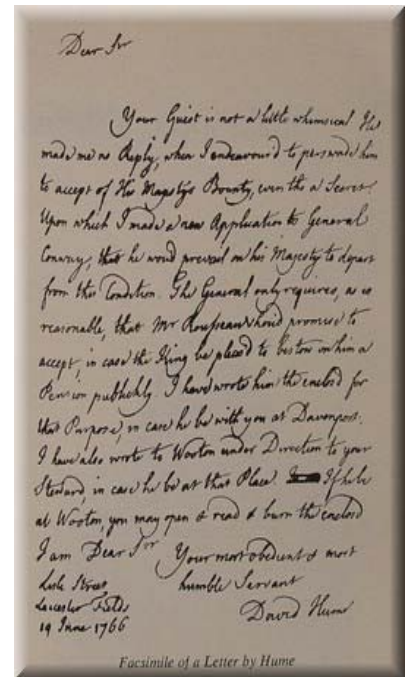 Dear Sir
Your Guest is not a little whimsical. He
made me no Reply, when I endeavour'd to perswade him
to accept of His Majestys Bounty, even tho a Secret.
Upon which I made a new Application to General
Conway, that he woud prevail on his Majesty to depart
from this Condition. The General only requires, as is
reasonable, that Mr Rousseau shoud promise to
accept, in case the King be pleas'd to bestow on him a
Pension publickly. I have wrote him the enclosd for
that Purpose, in case he be with you at Davenport.
I have also wrote to Wooton under Direction to your
Steward, in case he be at that Place. If he be
at Wooton, you may open & read & burn the enclosd
I am Dear Sir Your most obedient & most
humble Servant
Lisle Street
Leicester Fields
David Hume
19 June 1766
Facsimile of a Letter by Hume